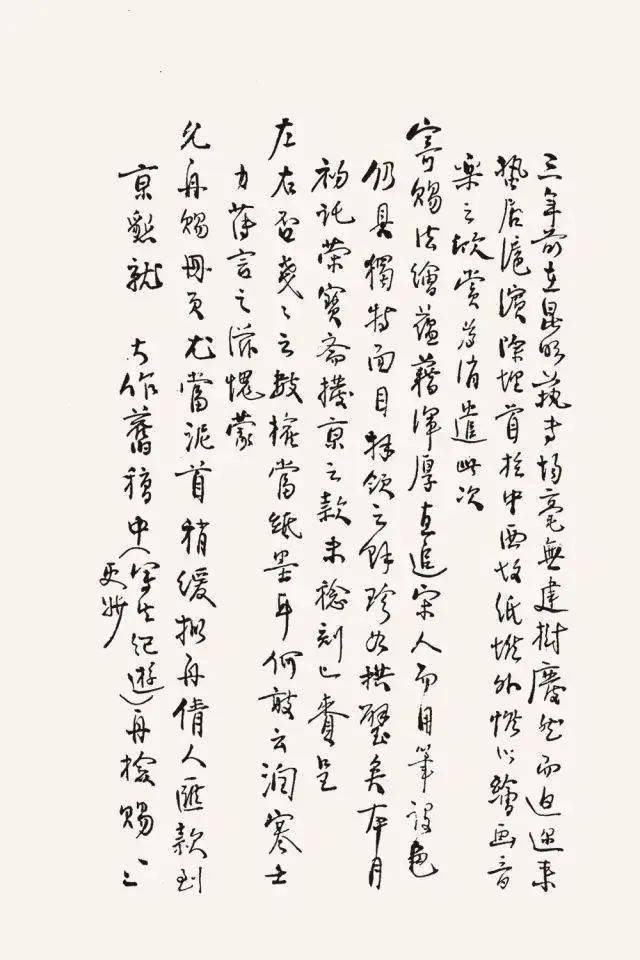 三年前在昆明藝専均毫無建樹廢然而退邇來
蟄居滬濱除埋首於中西故紙堆外惟以繪画音
樂之欣賞爲消遣此次
寄賜法繪蘊藉渾厚直追宋人而用筆設色
仍具獨特面目拜領之餘珍如拱璧矣本月
初託榮寳齋撥京之款未稔刻已賫呈
左右否戔〻之數権當紙墨耳何敢云潤寒士
力薄言之滋愧蒙
允再賜冊頁尤當泥首稍緩擬再倩人匯款到
京懇就 大作舊稿中(寫生紀遊)再撿賜一二
更妙